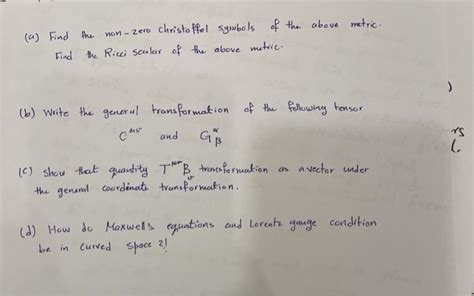 (a) Find the non-zero Christoffel symbols of the above metric.
Find the Ricci scalar of the above metric.
(b) Write the general transformation of the following tensor
C^{μν} and G^α_β
(c) Show that quantity T^{μν}B_ν transformation as a vector under
the general coordinate transformation.
(d) How do Maxwell's equations and Lorentz gauge condition
be in curved space ?!